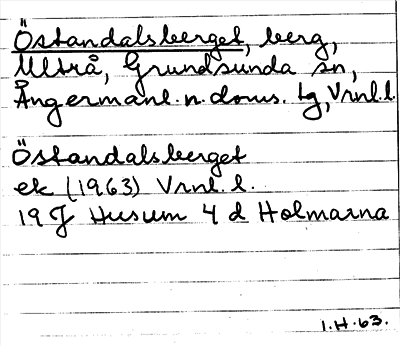 Östandalsberget, berg,
Ultrå, Grundsunda sn,
Ångermanl. n. doms. tg, Vrnl. l.
Östandalsberget
ek (1963) Vrnl. l.
19 J Husum 4 d Holmarna
I.H.63.